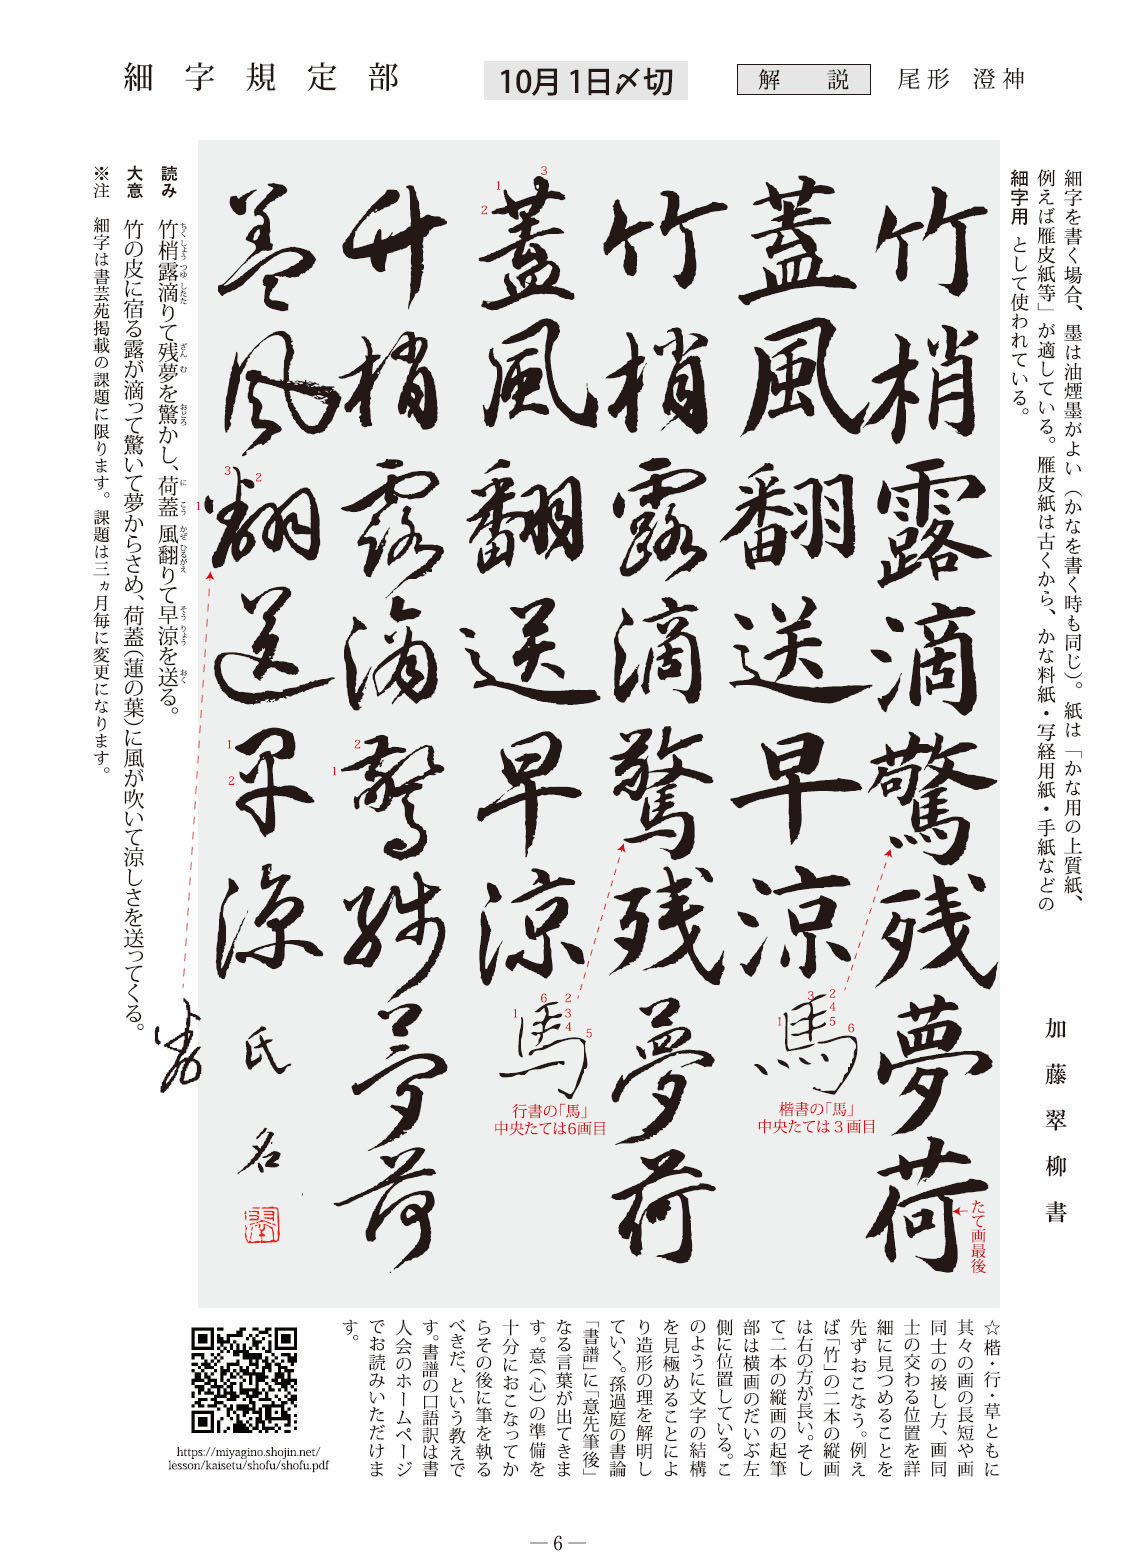 細字規定部
10月1日〆切
解 説
尾形 澄神
細字を書く場合、墨は油煙墨がよい（かなを書く時も同じ）。紙は「かな用の上質紙、
例えば雁皮紙等」が適している。雁皮紙は古くから、かな料紙・写経用紙・手紙などの
細字用 として使われている。
加藤翠柳書
竹梢露滴驚残夢荷
たて画最後
蓋風翻送早涼
馬
1
3
2
4
5
6
楷書の「馬」
中央たては3画目
竹梢露滴驚残夢荷
蓋風翻送早涼
1
2
3
馬
1
6
2
3
4
5
行書の「馬」
中央たては6画目
竹梢露滴驚残夢荷
2
1
蓋風翻送早涼
3
2
1
1
2
氏名
読み 竹梢露滴りて残夢を驚かし、荷蓋風翻りて早涼を送る。
ちくしょう つゆ したた ざん む おどろ に こう かぜ ひるがえ そう りょう おく
大意 竹の皮に宿る露が滴って驚いて夢からさめ、荷蓋（蓮の葉）に風が吹いて涼しさを送ってくる。
※注 細字は書芸苑掲載の課題に限ります。課題は三ヵ月毎に変更になります。
☆楷・行・草ともに
其々の画の長短や画
同士の接し方、画同
士の交わる位置を詳
細に見つめることを
先ずおこなう。例え
ば「竹」の二本の縦画
は右の方が長い。そし
て二本の縦画の起筆
部は横画のだいぶ左
側に位置している。こ
のように文字の結構
を見極めることによ
り造形の理を解明し
ていく。孫過庭の書論
「書譜」に「意先筆後」
なる言葉が出てきま
す。意（心）の準備を
十分におこなってか
らその後に筆を執る
べきだ、という教えで
す。書譜の口語訳は書
人会のホームページ
でお読みいただけま
す。
https://miyagino.shojin.net/
lesson/kaisetu/shofu/shofu.pdf
— 6 —